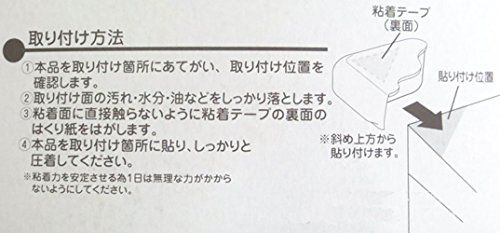 取り付け方法
①本品を取り付け箇所にあてがい、取り付け位置を
確認します。
②取り付け面の汚れ・水分・油などをしっかり落とします。
③粘着面に直接触らないように粘着テープの裏面の
はくり紙をはがします。
④本品を取り付け箇所に貼り、しっかりと
圧着してください。
※粘着力を安定させる為1日は無理な力がかから
ないようにしてください。
粘着テープ
(裏面)
貼り付け位置
※斜め上方から
貼り付けます。